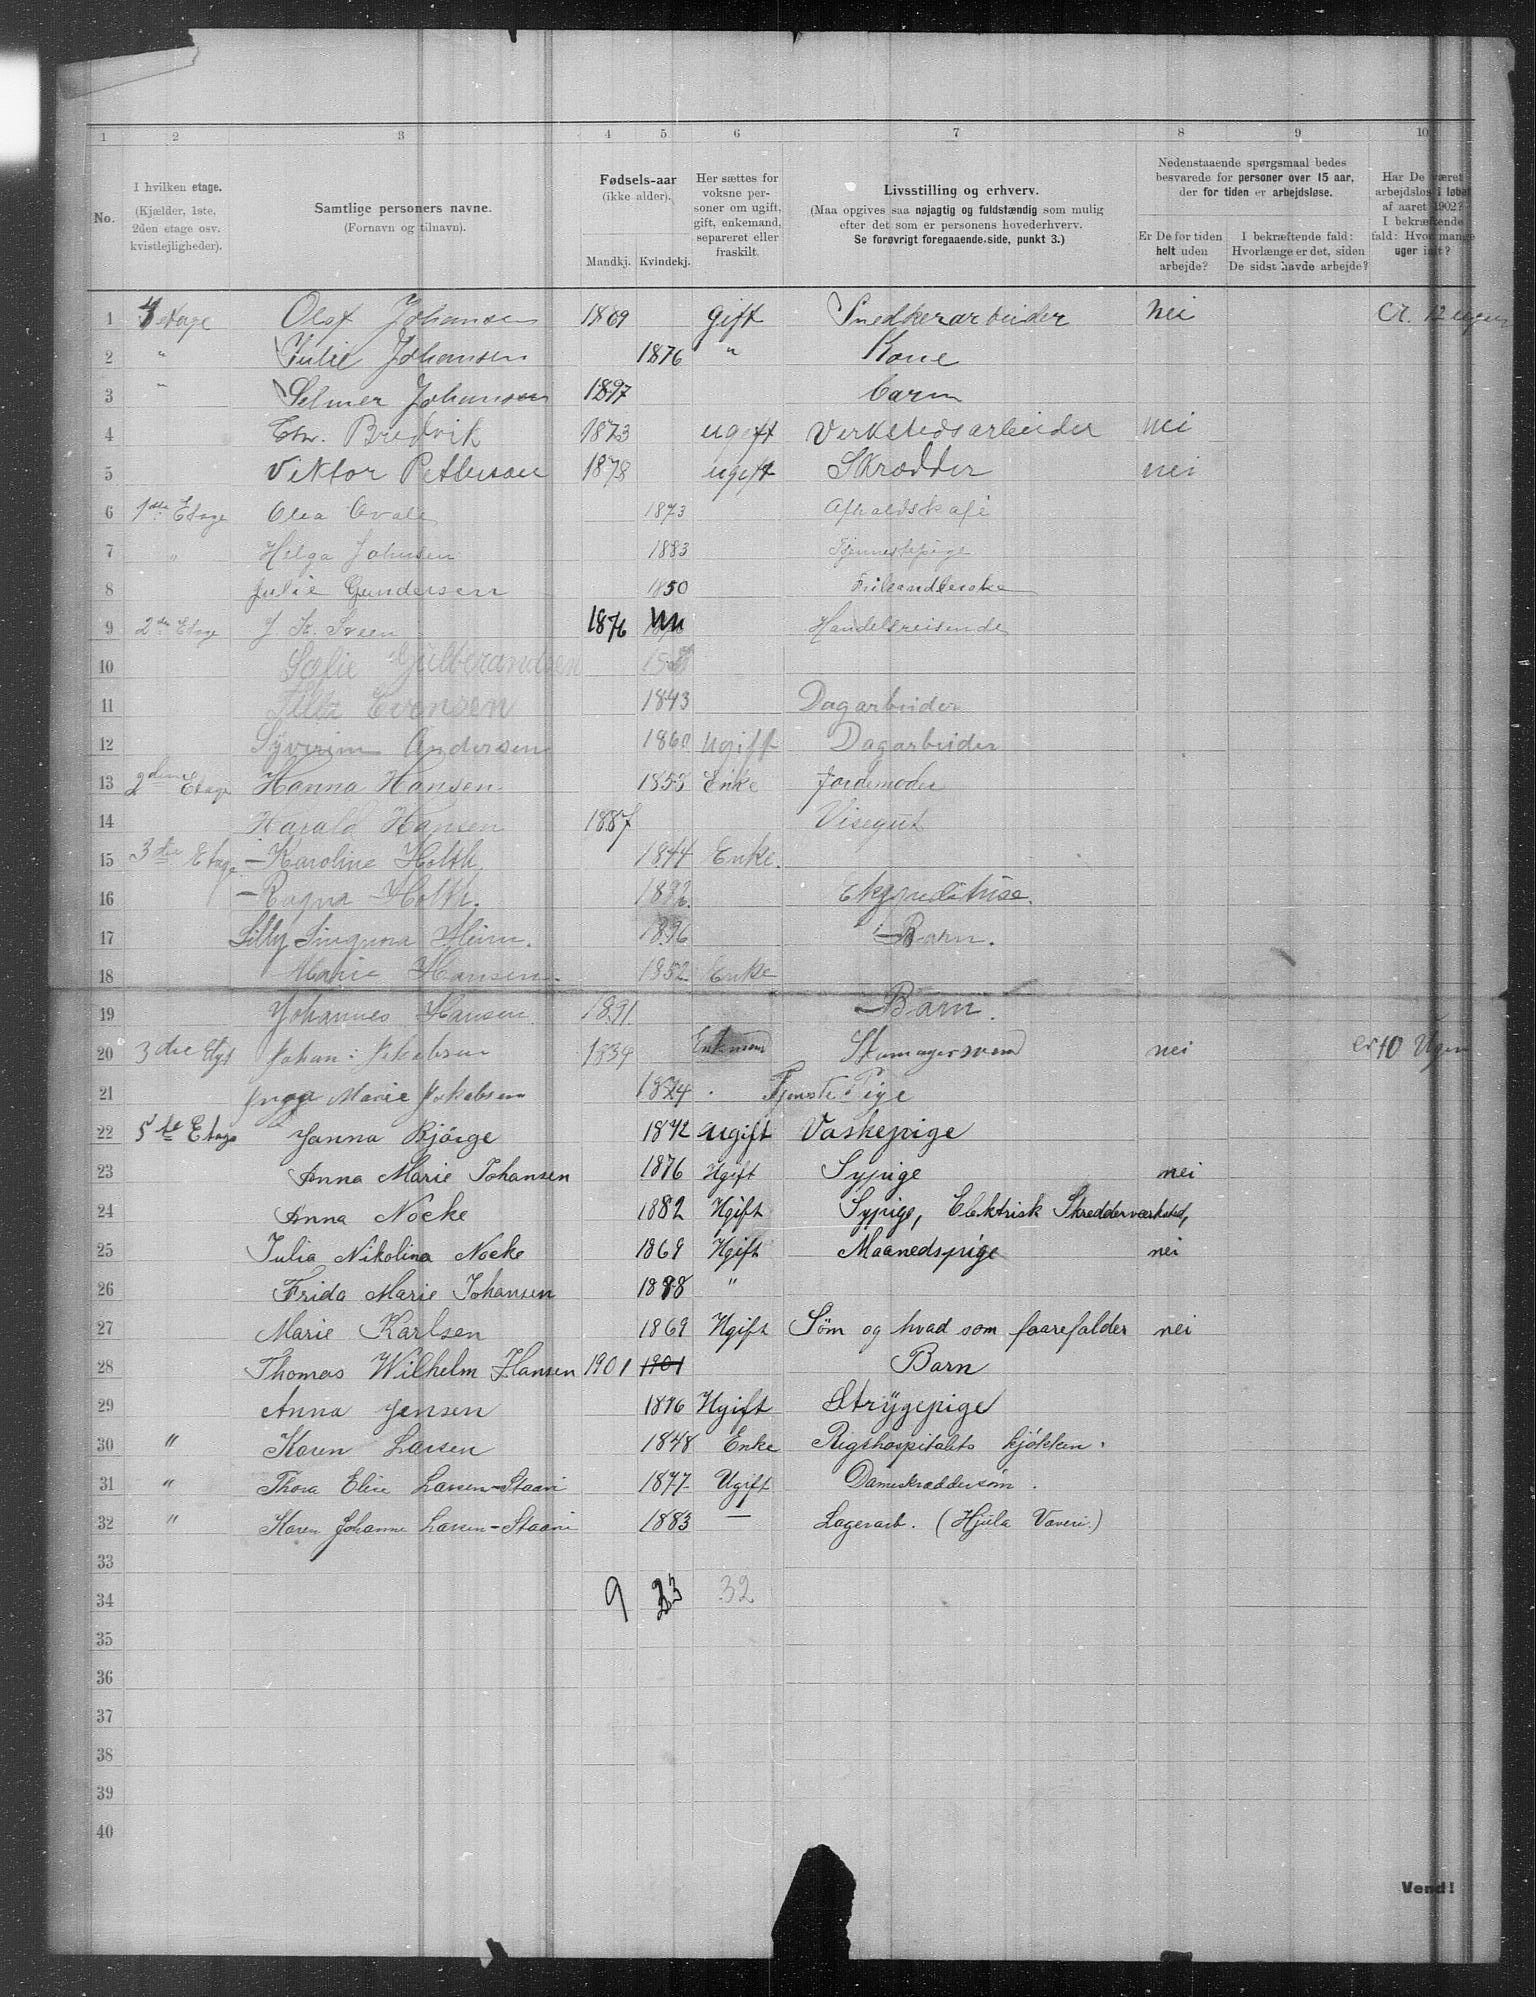 1 2 3 4 5 6 7 8 9 10
No. I hvilken etage. (Kjælder, 1ste, 2den etage osv. kvistlejligheder). Samtlige personers navne. (Fornavn og tilnavn). Fødsels-aar (ikke alder). Mandkj. Kvindekj. Her sættes for voksne personer om ugift, gift, enkemand, separeret eller fraskilt. Livsstilling og erhverv. (Maa opgives saa nøjagtig og fuldstændig som mulig efter det som er personens hovederhverv. Se forøvrigt foregaaende side, punkt 3.) Nedenstaaende spørgsmaal bedes besvarede for personer over 15 aar, der for tiden er arbejdsløse. Er De for tiden helt uden arbejde? I bekræftende fald: Hvorlænge er det, siden De sidst havde arbejde? Har De været arbejdsløs i løbet af aaret 1902? I bekræftende fald: Hvor mange uger ialt?
1 Etage Olaf Johansen 1869 gift Snedkerarbeider nei cr. 12 uger
2 " Julie Johansen 1876 " Kone
3 " Selmer Johansen 1897 barn
4 Chr. Bredvik 1873 ugift Verkstedsarbeider nei
5 Viktor Pettersen 1878 ugift Skrædder nei
6 1ste Etage Olea 1873 Afholdskafé
7 " Helga Johnsen 1883 Tjennestepige
8 Julie Gundersen 1850
9 2den Etage J K. Sveen 1876 Handelsreisende
10 Sofie Gulbrandsen
11 Evensen 1843 Dagarbeider
12 Andersen 1860 Ugift Dagarbeider
13 2den Etage Hanna Hansen 1858 Enke Jordemoder
14 Harald Hansen 1887 Visegut
15 3die Etage - Karoline Holth 1844 Enke.
16 - Ragna Holth. 1882 Ekspeditrise.
17 Lilly 1896 Barn.
18 Marie Hansen. 1852 Enke
19 Johannes Hansen 1891. Barn.
20 3die Etg Johan Jakobsen 1839 Enkemand nei cr 10 Uger
21 Inga Marie Jakobsen 1874 Tjeneste Pige
22 5te Etage Janna Bjørge 1872 Ugift Vaskepige
23 Anna Marie Johansen 1876 Ugift Sypige nei
24 Anna Nocke 1882 Ugift Sypige, Elektrisk Skredderværksted,
25 Julia Nikolina Nocke 1869 Ugift Maanedspige nei
26 Frida Marie Johansen 1898 "
27 Marie Karlsen 1869 Ugift Søm og hvad som faarefalder nei
28 Thomas Wilhelm Hansen 1901 1901 Barn
29 Anna Jensen 1876 Ugift Strygepige
30 " Karen Larsen 1848 Enke Rigshospitalets kjøkken.
31 " Thora Elise Larsen-Staari 1877 Ugift Dameskræddersøm.
32 " Karen Johanne Larsen-Staari 1883 — Lagerarb. (Hjula Væveri.)
33
34 9 23 32
35
36
37
38
39
40
Vend!